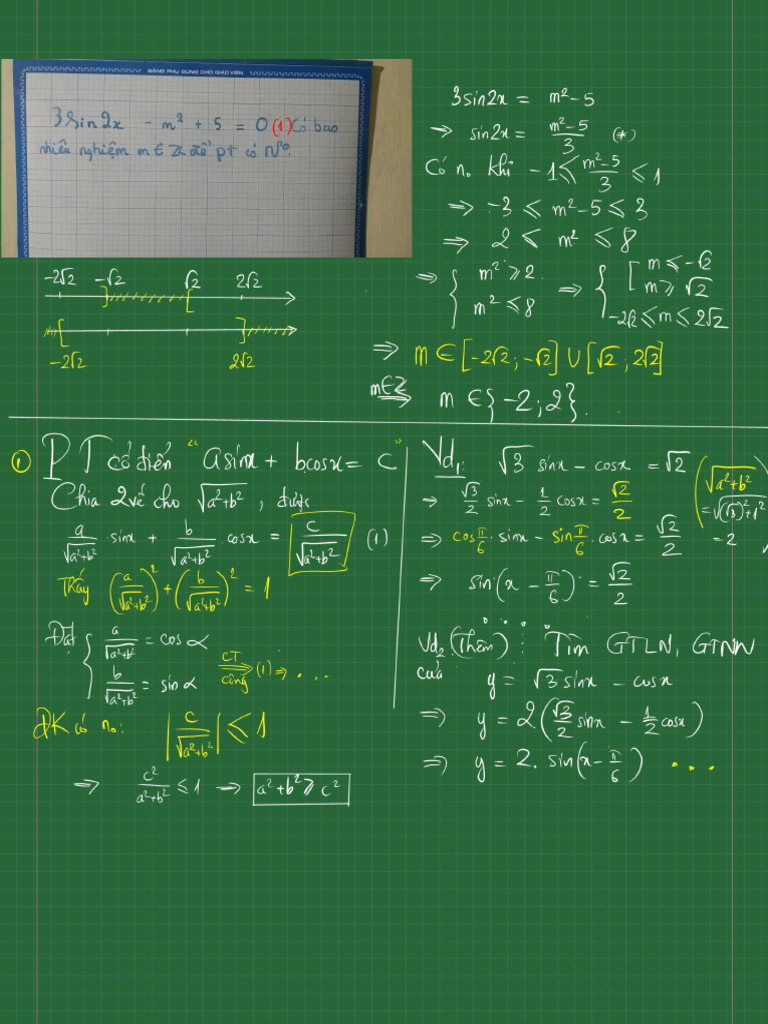 BẢNG PHỤ DÙNG CHO GIÁO VIÊN
3sin2x - m² + 5 = 0 (1) Có bao
nhiêu nghiệm m ∈ Z để pt có Nº.
3sin2x = m² - 5
→ sin2x = (m² - 5)/3 (*)
Có n₀ khi -1 ≤ (m² - 5)/3 ≤ 1
⇒ -3 ≤ m² - 5 ≤ 3
⇒ 2 ≤ m² ≤ 8
⇒ { m² ≥ 2 ; m² ≤ 8 ⇒ { [ m ≤ -√2 ; m ≥ √2 ; -2√2 ≤ m ≤ 2√2
⇒ m ∈ [-2√2; -√2] ∪ [√2; 2√2]
m∈Z ⇒ m ∈ {-2; 2}.
-2√2 -√2 √2 2√2
-2√2 2√2
① PT cổ điển "asinx + bcosx = c"
Chia 2 vế cho √(a²+b²), được
a/√(a²+b²) · sinx + b/√(a²+b²) · cosx = c/√(a²+b²) (1)
Thấy (a/√(a²+b²))² + (b/√(a²+b²))² = 1
Đặt { a/√(a²+b²) = cos α ; b/√(a²+b²) = sin α
CT cộng ⇒ (1) ⇒ ...
ĐK có n₀: |c/√(a²+b²)| ≤ 1
⇒ c²/(a²+b²) ≤ 1 → a² + b² ≥ c²
Vd₁: √3 sinx - cosx = √2
(√(a²+b²)
= √((√3)²+1²)
= 2
→ √3/2 sinx - 1/2 cosx = √2/2
⇒ cos π/6 · sinx - sin π/6 · cosx = √2/2
⇒ sin(x - π/6) = √2/2
Vd₂ (Thêm) : Tìm GTLN, GTNN
của y = √3 sinx - cosx
⇒ y = 2(√3/2 sinx - 1/2 cosx)
⇒ y = 2. sin(x - π/6) ...